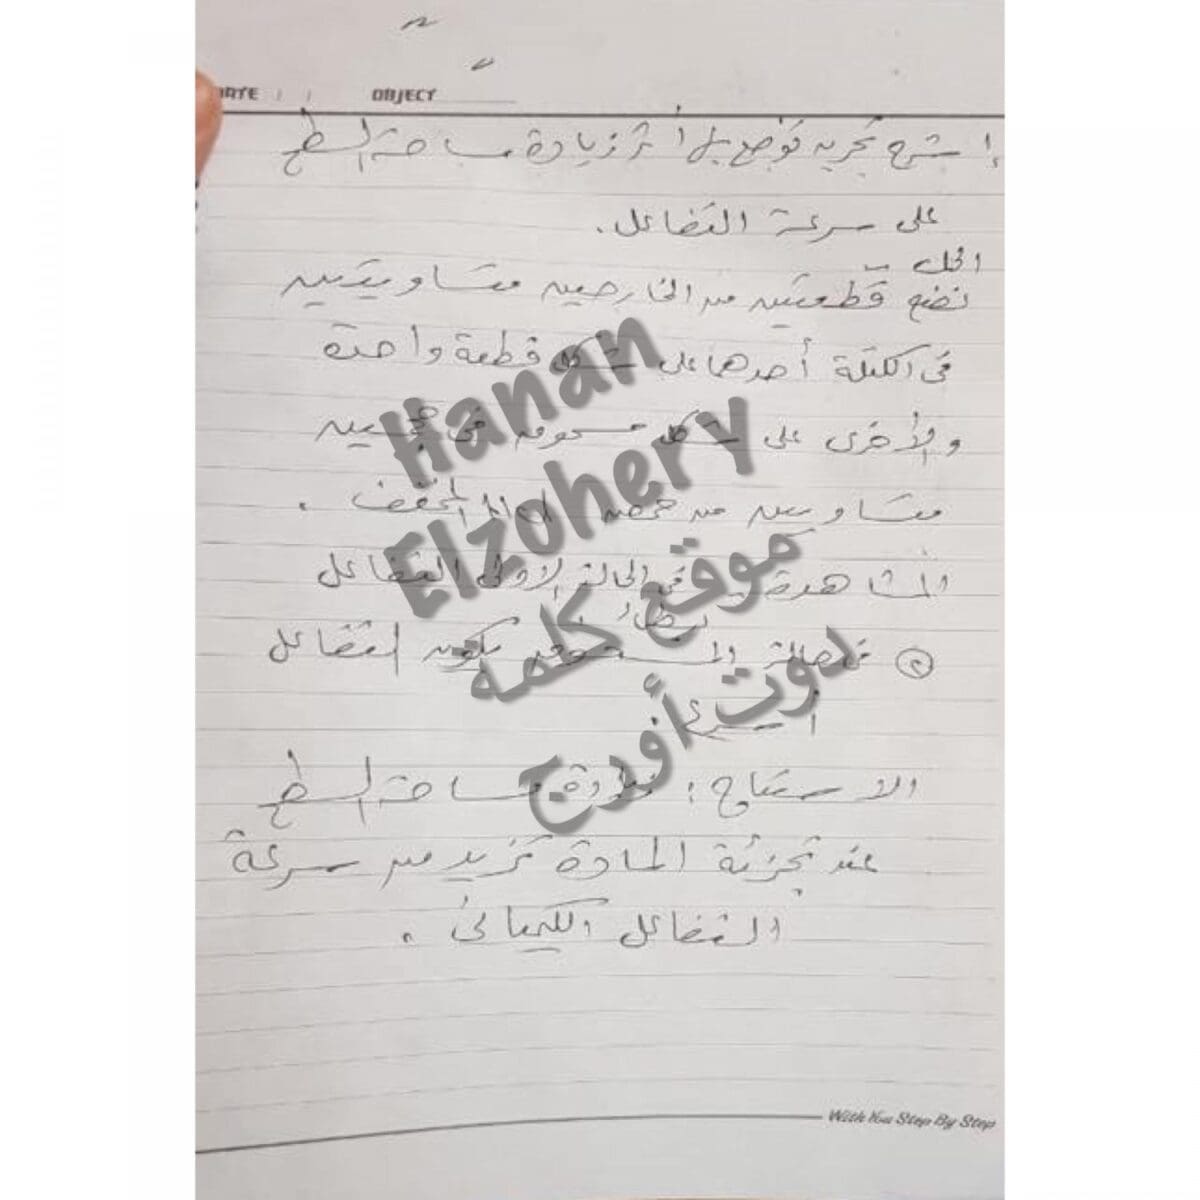 DATE / / OBJECT
إشرح تجربه توضح بها أثر زيادة مساحة السطح
على سرعة التفاعل.
الحل
نضع قطعتين من الخارصين متساويتين
فى الكتلة أحدها على شكل قطعة واحدة
والأخرى على شكل مسحوق فى حجمين
متساويين من حمض المخفف .
المشاهدة فى الحالة الأولى التفاعل
بطئ
② فى حالة المسحوق يكون التفاعل
أسرع
الاستنتاج : زيادة مساحة السطح
عند تجزئة المادة تزيد من سرعة
التفاعل الكيميائى .
Hanan
Elzohery
موقع كلمة
دوت أورج
With You Step By Step